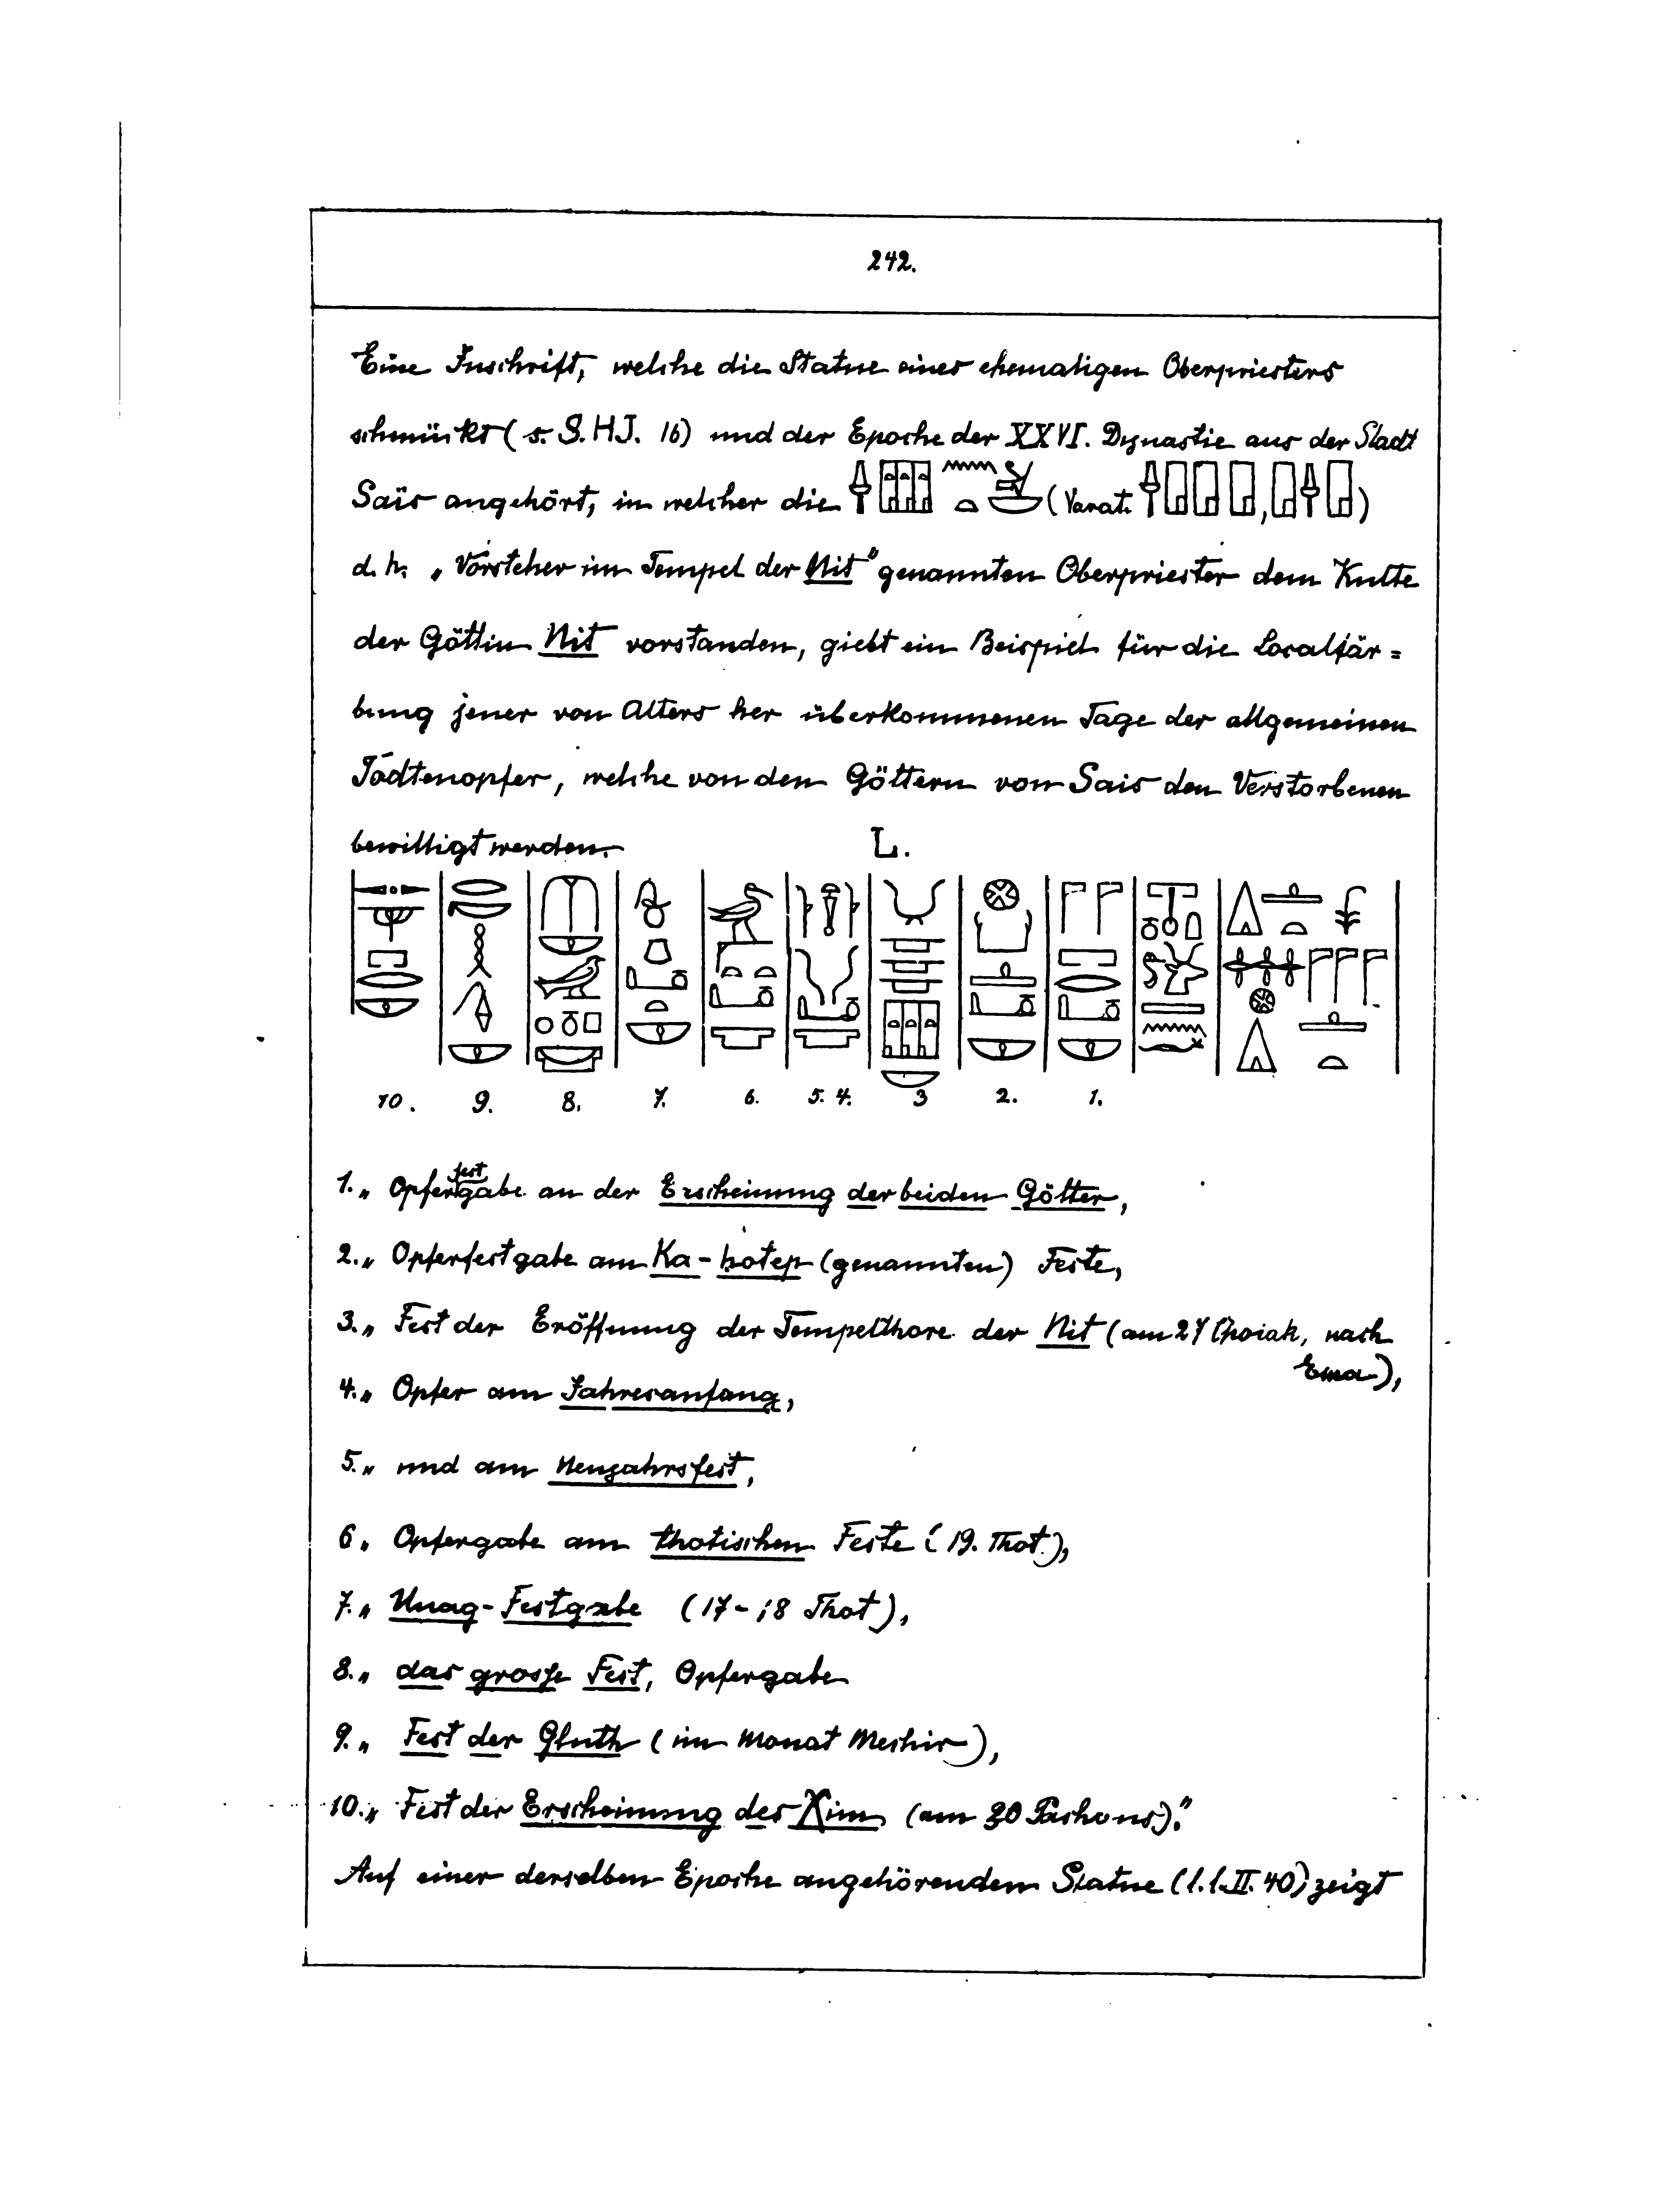 242.
Eine Inschrift, welche die Statue eines ehemaligen Oberpriesters
schmückt (s. S. H J. 16) und der Epoche der XXVI. Dynastie aus der Stadt
Saïs angehört, in welcher die (Variat. , )
d. h. „Vorsteher im Tempel der Nit" genannten Oberpriester dem Kulte
der Göttin Nit vorstanden, giebt ein Beispiel für die Localfär=
bung jener von Alters her überkommenen Tage der allgemeinen
Todtenopfer, welche von den Göttern von Sais den Verstorbenen
bewilligt werden.
L.
10. 9. 8. 7. 6. 5. 4. 3 2. 1.
1. „ Opferfestgabe an der Erscheinung der beiden Götter,
2. „ Opferfestgabe am Ka-hotep (genannten) Feste,
3. „ Fest der Eröffnung der Tempelthore der Nit (am 27 Choiak, nach
Esna),
4. „ Opfer am Jahresanfang,
5. „ und am Neujahrsfest,
6 „ Opfergabe am thotischen Feste (19. Thot),
7. „ Uuag-Festgabe (17-18 Thot),
8. „ das grosse Fest, Opfergabe
9. „ Fest der Gluth (im Monat Mechir),
10. „ Fest der Erscheinung des Xim (am 30 Pachons)."
Auf einer derselben Epoche angehörenden Statue (l. l. II. 40) zeigt